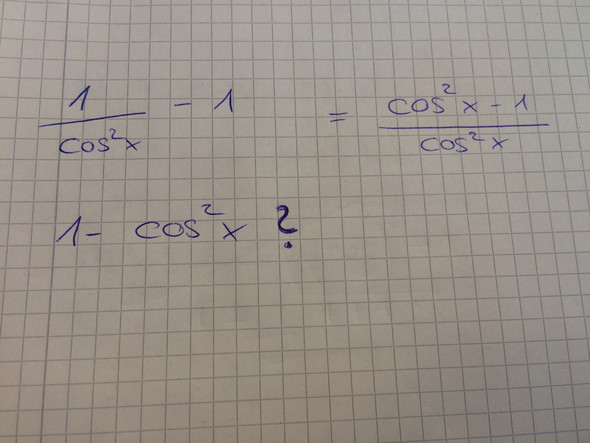 1/cos²x - 1 = (cos²x - 1)/cos²x
1 - cos²x ?